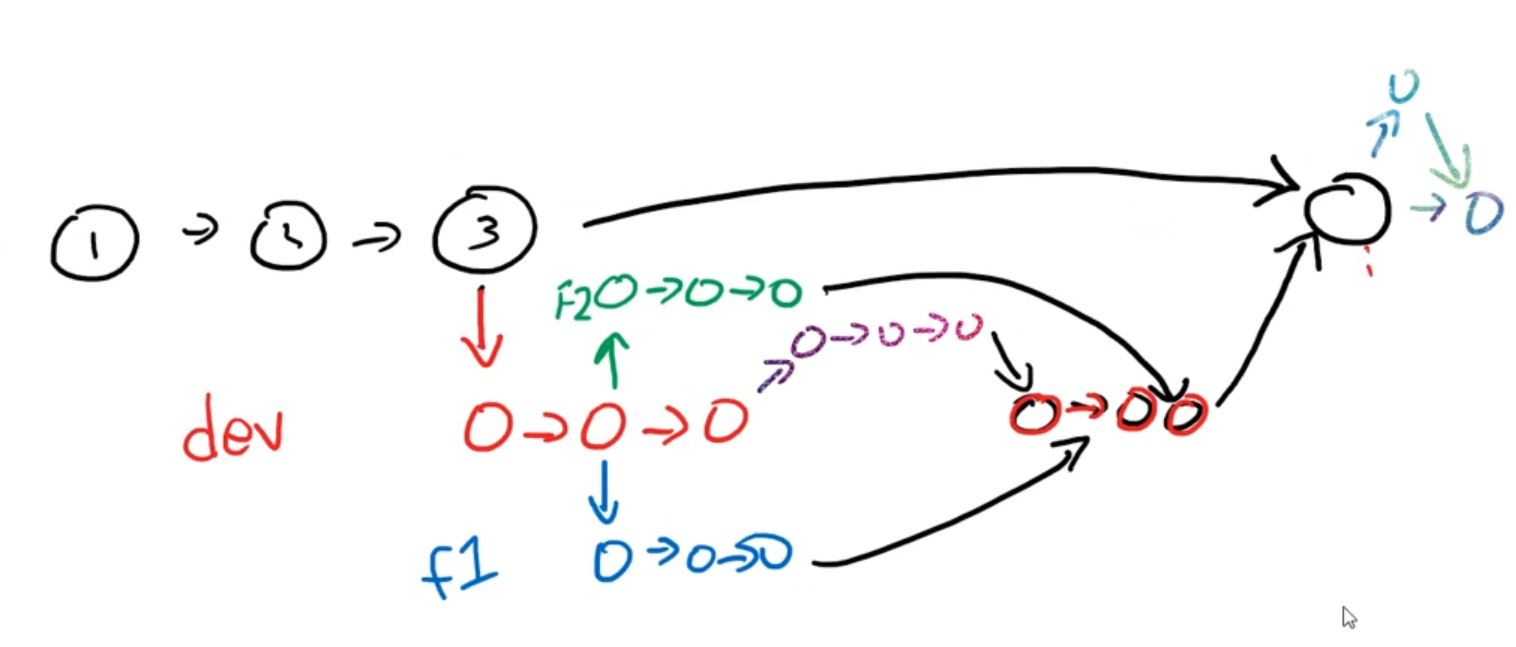 1 → 2 → 3
F2
dev
f1